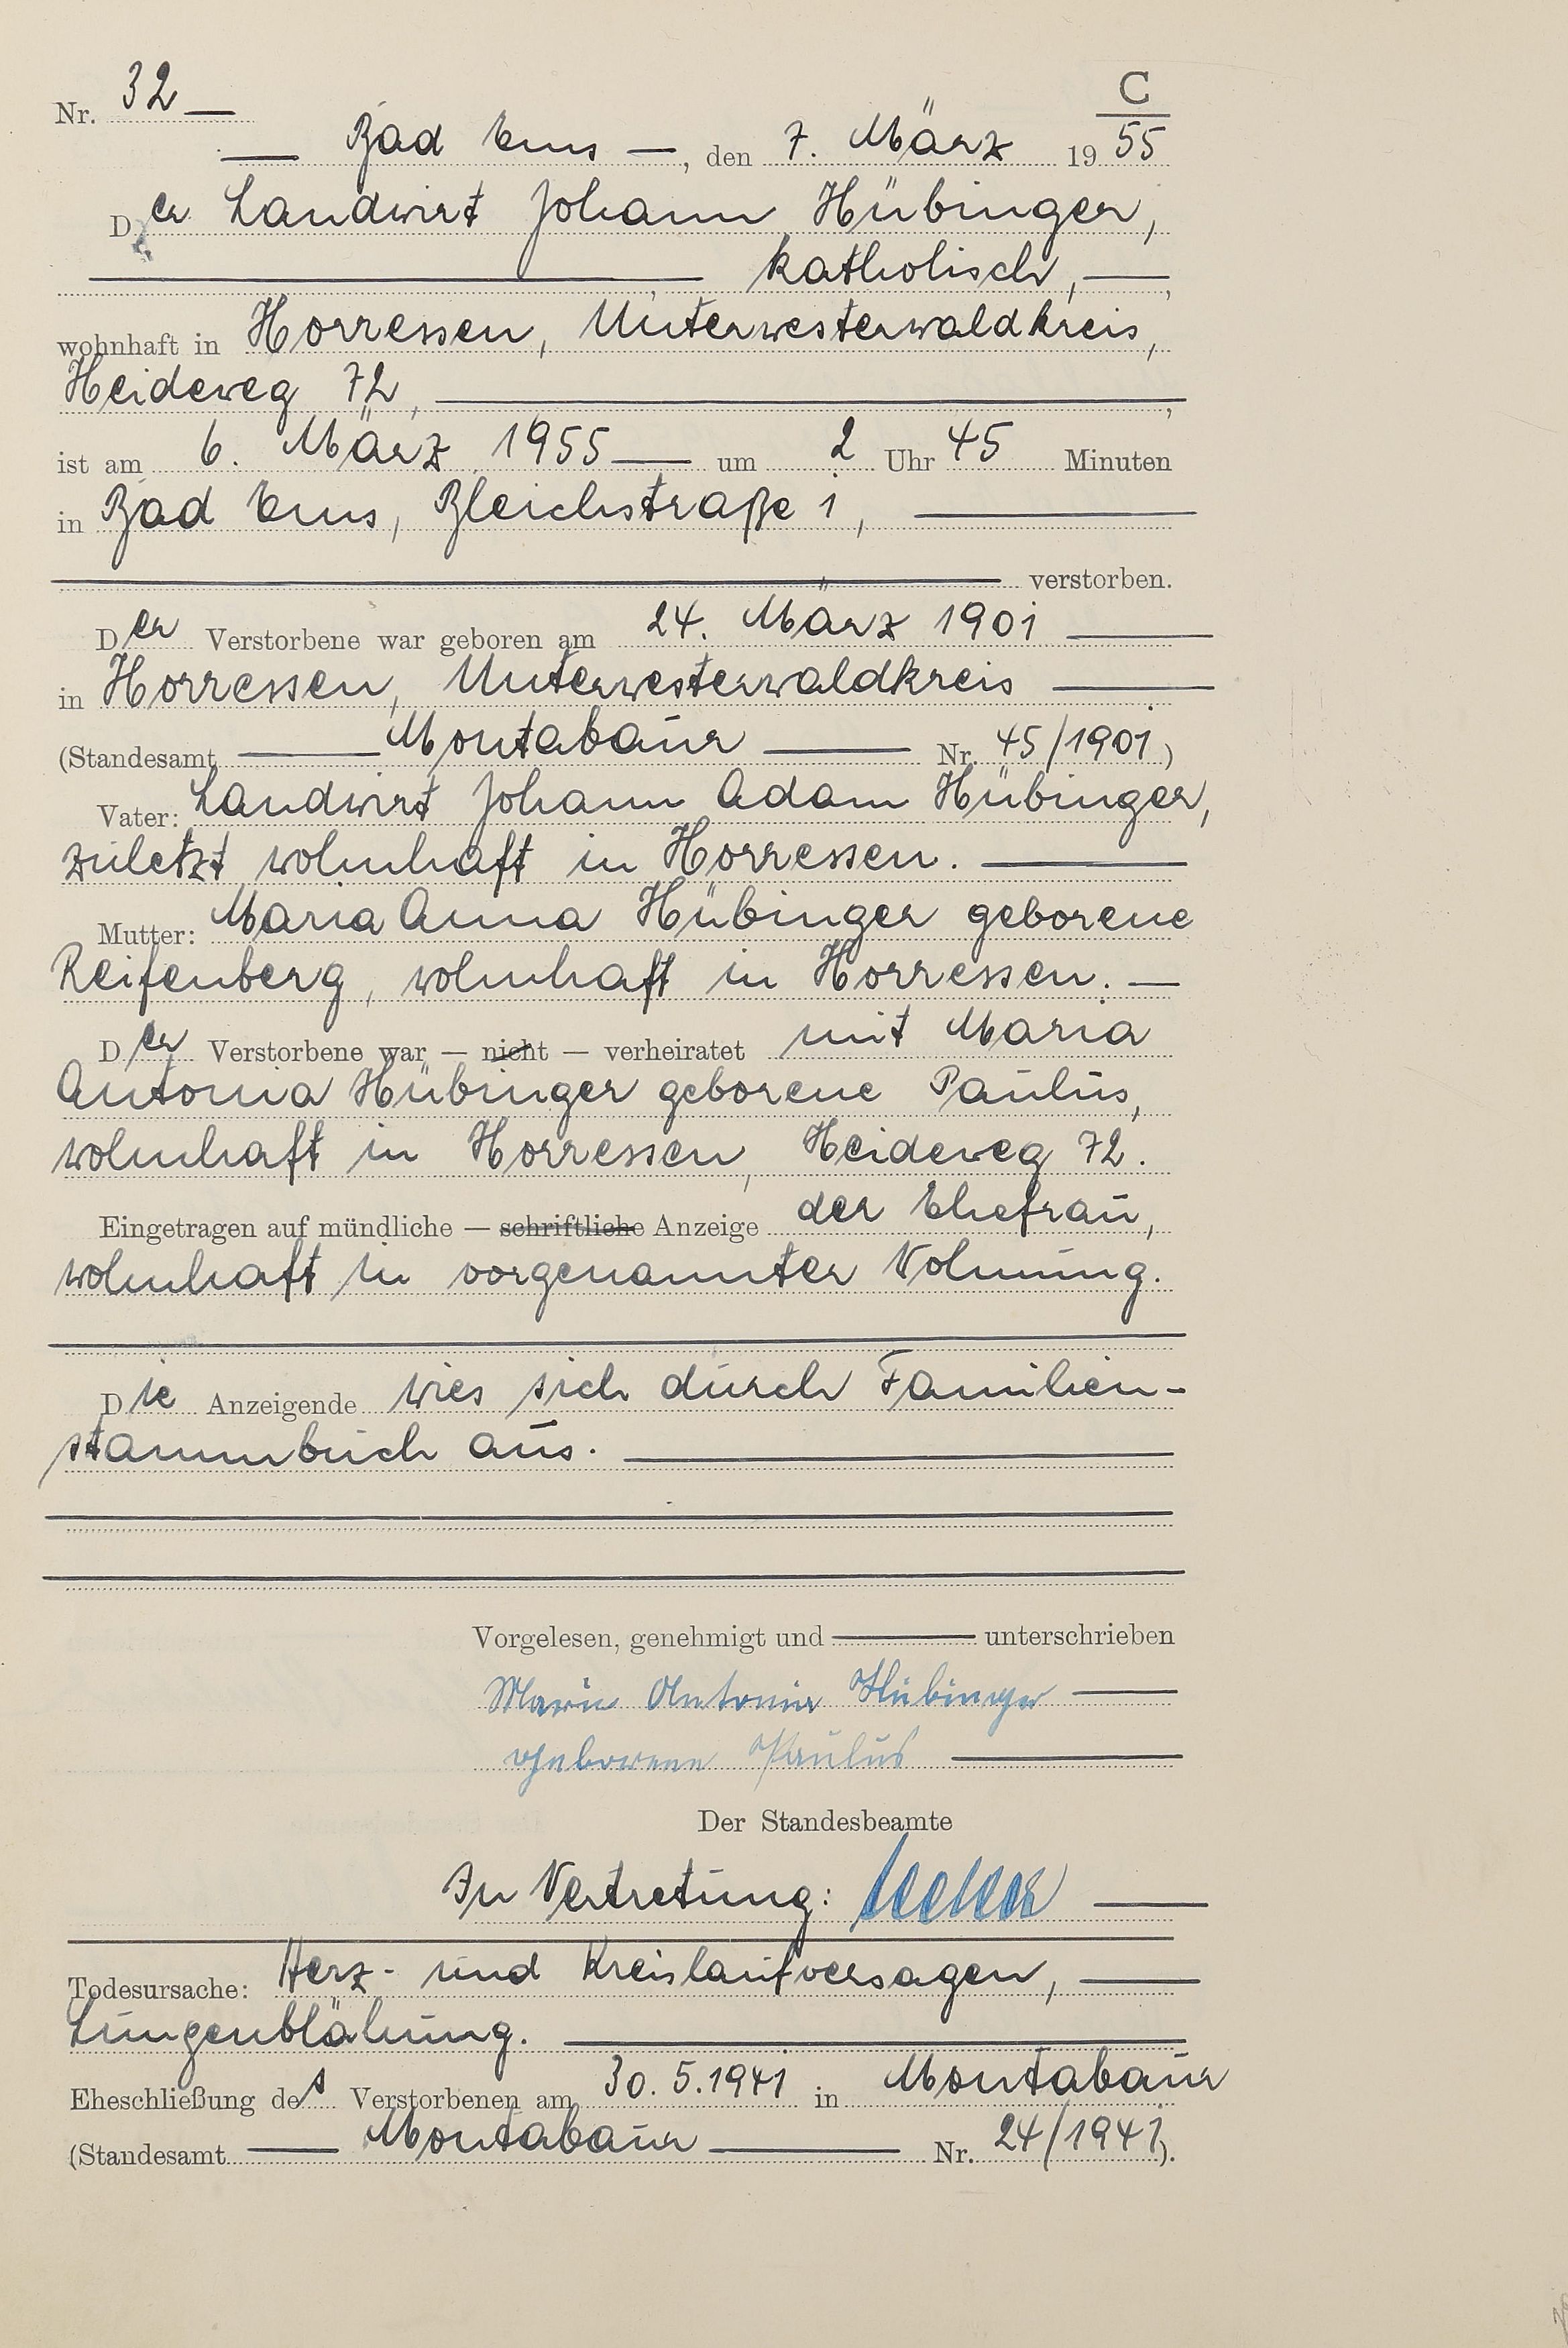 C
Nr. 32
Bad Ems, den 7. März 1955
Der Landwirt Johann Hübinger,
katholisch,
wohnhaft in Horressen, Unterwesterwaldkreis,
Heideweg 72,
ist am 6. März 1955 um 2 Uhr 45 Minuten
in Bad Ems, Bleichstraße 1,
verstorben.
Der Verstorbene war geboren am 24. März 1901
in Horressen, Unterwesterwaldkreis
(Standesamt Montabaur Nr. 45/1901)
Vater: Landwirt Johann Adam Hübinger,
zuletzt wohnhaft in Horressen.
Mutter: Maria Anna Hübinger geborene
Reifenberg, wohnhaft in Horressen.
Der Verstorbene war — nicht — verheiratet mit Maria
Antonia Hübinger geborene Paulus,
wohnhaft in Horressen, Heideweg 72.
Eingetragen auf mündliche — schriftliche Anzeige der Ehefrau,
wohnhaft in vorgenannter Wohnung.
Die Anzeigende wies sich durch Familien-
stammbuch aus.
Vorgelesen, genehmigt und unterschrieben
Maria Antonia Hübinger
geborene Paulus
Der Standesbeamte
In Vertretung:
Todesursache: Herz- und Kreislaufversagen,
Lungenblähung.
Eheschließung des Verstorbenen am 30.5.1941 in Montabaur
(Standesamt Montabaur Nr. 24/1941).